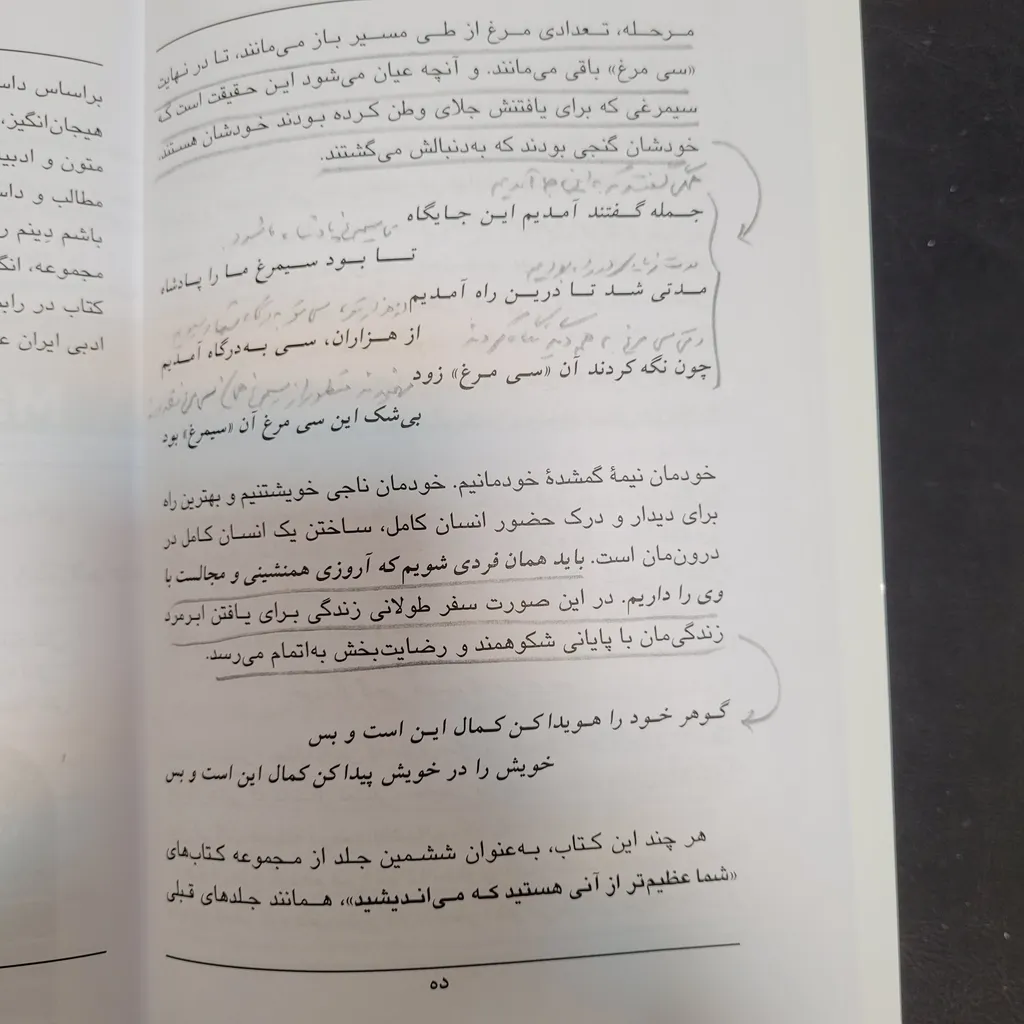 مرحله، تعدادی مرغ از طی مسیر باز می‌مانند، تا در نهایت
«سی مرغ» باقی می‌مانند. و آنچه عیان می‌شود این حقیقت است که
سیمرغی که برای یافتنش جلای وطن کرده بودند خودشان هستند.
خودشان گنجی بودند که به‌دنبالش می‌گشتند.
جمله گفتند آمدیم این جایگاه
تا بود سیمرغ ما را پادشاه
مدتی شد تا درین راه آمدیم
از هزاران، سی به‌درگاه آمدیم
چون نگه کردند آن «سی مرغ» زود
بی‌شک این سی مرغ آن «سیمرغ» بود
خودمان نیمهٔ گمشدهٔ خودمانیم. خودمان ناجی خویشتنیم و بهترین راه
برای دیدار و درک حضور انسان کامل، ساختن یک انسان کامل در
درون‌مان است. باید همان فردی شویم که آروزی همنشینی و مجالست با
وی را داریم. در این صورت سفر طولانی زندگی برای یافتن ابرمرد
زندگی‌مان با پایانی شکوهمند و رضایت‌بخش به‌اتمام می‌رسد.
گوهر خود را هویدا کن کمال این است و بس
خویش را در خویش پیدا کن کمال این است و بس
هر چند این کتاب، به‌عنوان ششمین جلد از مجموعه کتاب‌های
«شما عظیم‌تر از آنی هستید که می‌اندیشید»، همانند جلدهای قبلی
ده
براساس
هیجان‌انگیز،
متون و
مطالب و
باشم دِینم
مجموعه،
کتاب در
ادبی ایران